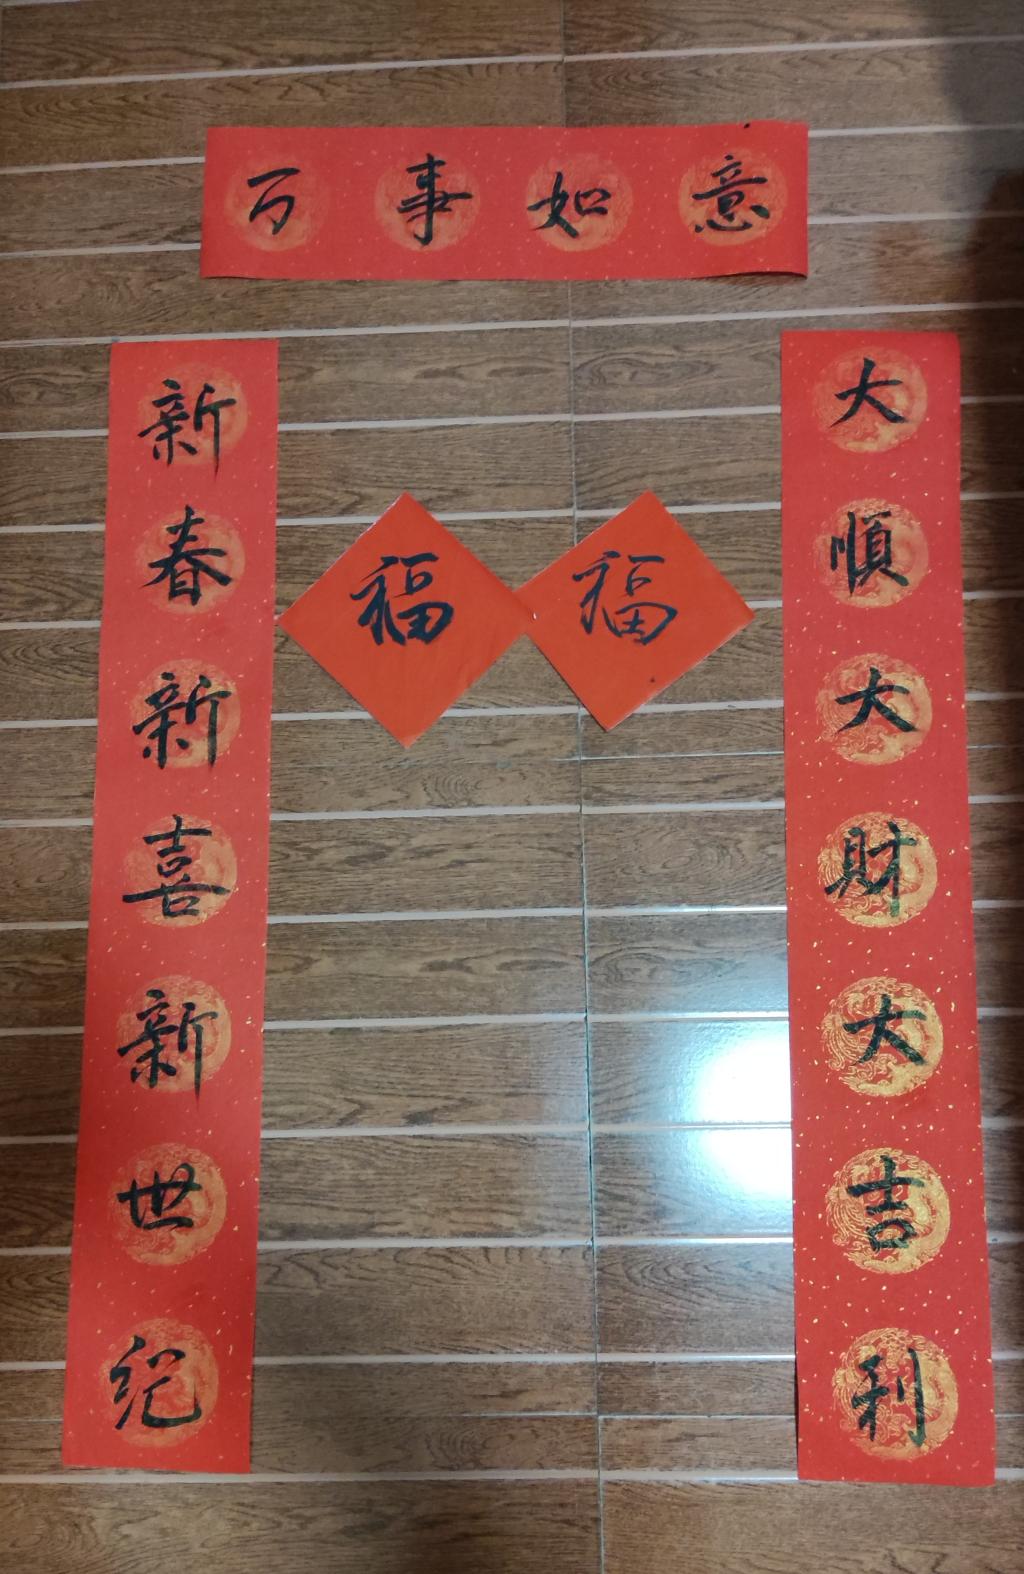 万事如意
新春新喜新世纪
福
福
大順大財大吉利